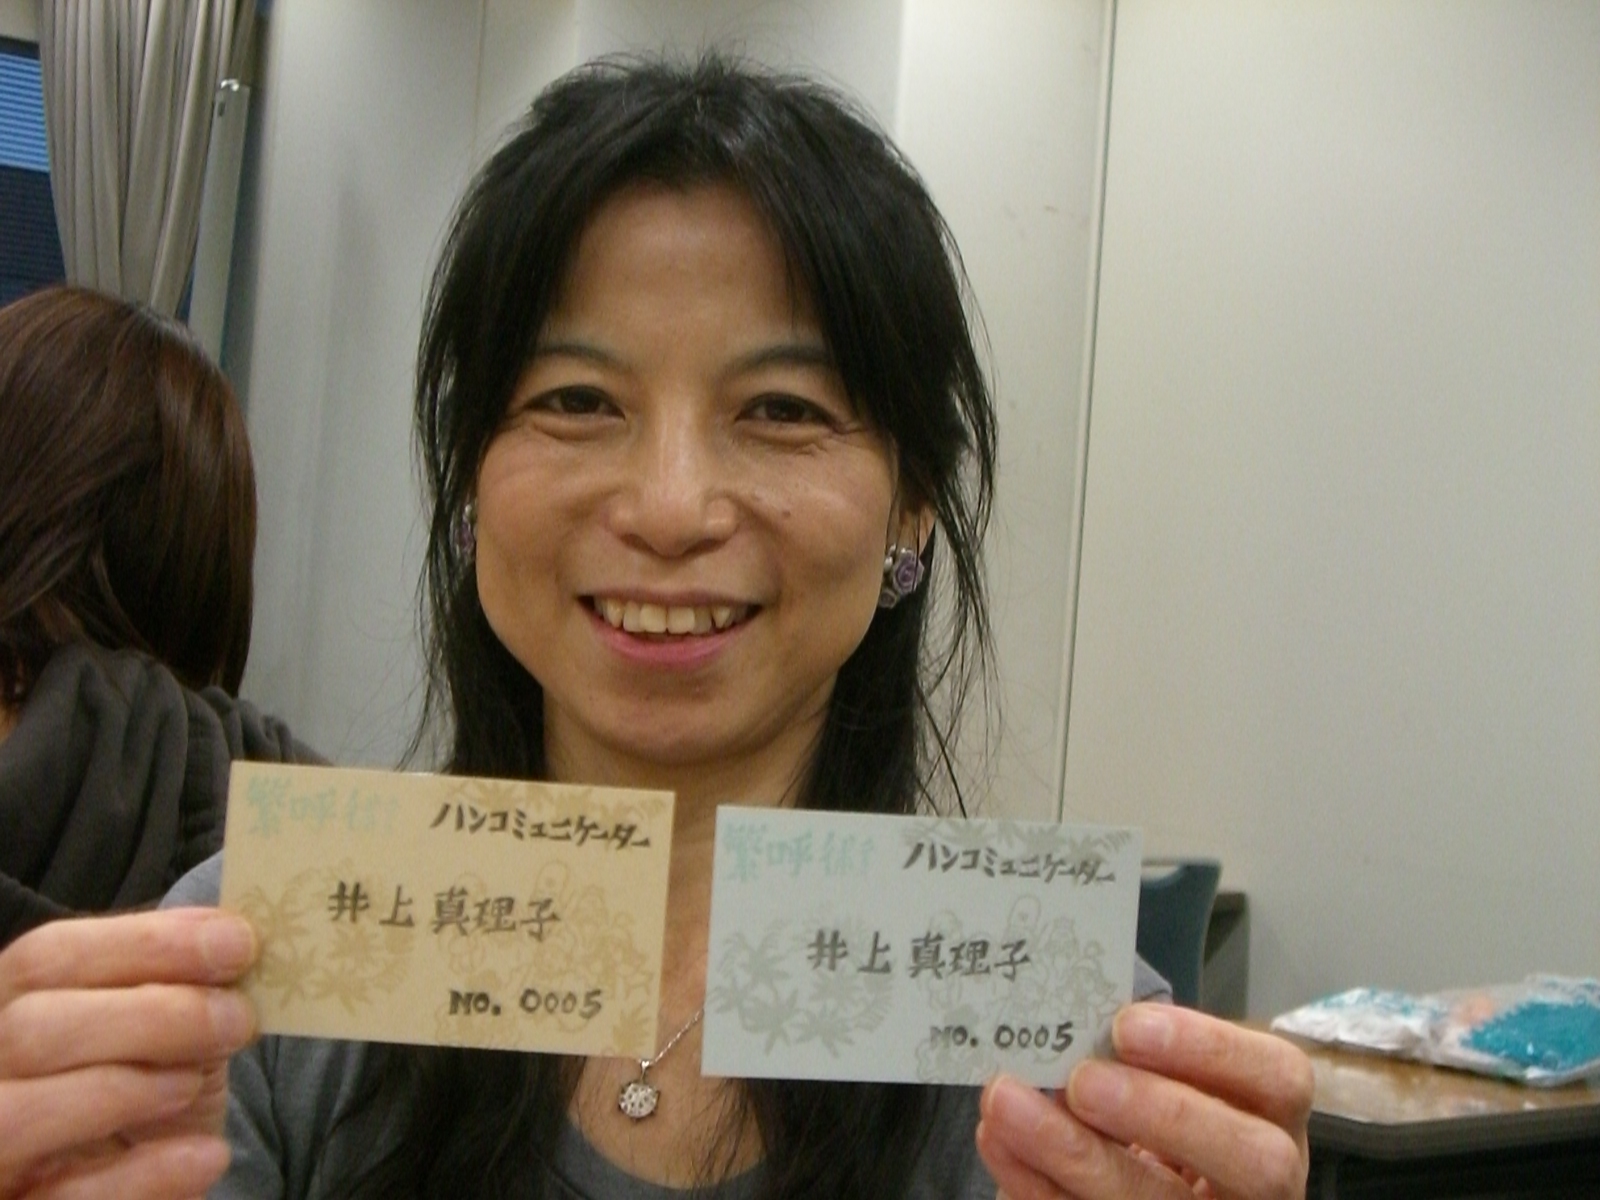 繁呼術
ハンコミュニケーター
井上真理子
NO. 0005
繁呼術
ハンコミュニケーター
井上真理子
NO. 0005